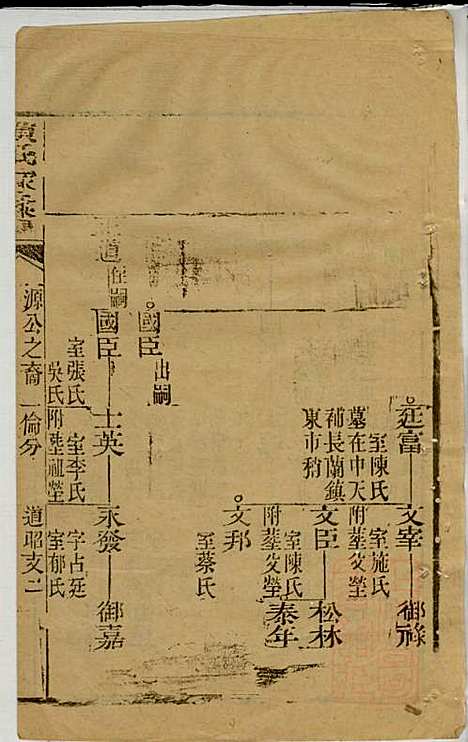 廷富
室陳氏
墓在中天
補長蘭鎮
東市稍
文宰
室施氏
附塟父塋
御祿
文臣
室陳氏
附塟父塋
松林
泰年
文邦
室蔡氏
國臣
出嗣
道
任嗣
國臣
室張氏
吳氏附塟祖塋
士英
室李氏
永發
字占廷
室郁氏
御嘉
氏家
源公之裔一倫分
道昭支二